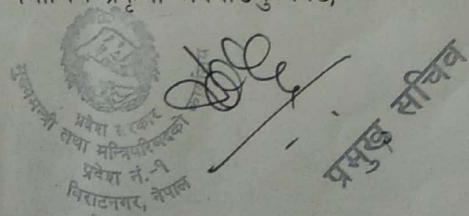 प्रदेश सरकार
मुख्यमन्त्री तथा मन्त्रिपरिषदको
प्रदेश नं.-१
विराटनगर, नेपाल
प्रमुख सचिव